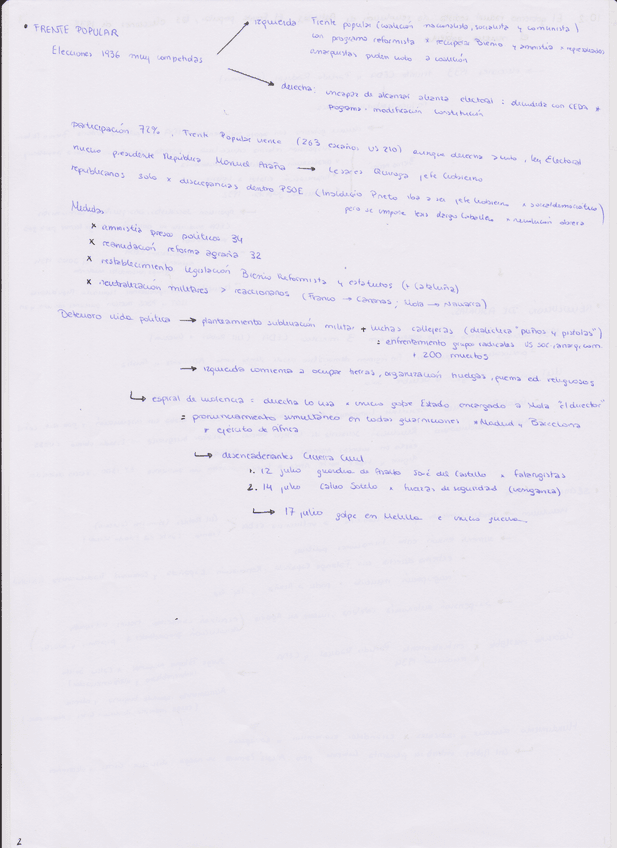 • FRENTE POPULAR
Elecciones 1936 muy competidas
izquierda: Frente popular (coalición nacionalista, socialista y comunista)
con programa reformista × recupera Bienio y amnistía × represaliados
anarquistas piden voto a coalición
derecha: incapaz de alcanzar alianza electoral: dividida con CEDA ×
programa: modificación constitución
participación 72%, Frente Popular vence (263 escaños vs 210) aunque derecha + voto, ley electoral
nuevo presidente República Manuel Azaña → Casares Quiroga jefe Gobierno
republicanos solo × discrepancias dentro PSOE (Indalecio Prieto iba a ser jefe Gobierno × socialdemocrata)
pero se impone Largo Caballero × revolución obrera
Medidas
× amnistía presos políticos 34
× reanudación reforma agraria 32
× restablecimiento legislación Bienio Reformista y estatutos (+ Cataluña)
× neutralización militares > reaccionarios (Franco → Canarias, Mola → Navarra)
Deterioro vida política → planteamiento sublevación militar + luchas callejeras (dialéctica "puños y pistolas")
= enfrentamiento grupos radicales vs soc, anarq, com
+ 200 muertos
→ izquierda comienza a ocupar tierras, organización huelgas, quema ed. religiosos
→ espiral de violencia = derecha lo usa × inicio golpe Estado encargado a Mola "el director"
= pronunciamiento simultáneo en todas guarniciones × Madrid y Barcelona
× ejército de África
→ desencadenantes Guerra Civil
1. 12 julio guardia de Asalto José del Castillo × falangistas
2. 14 julio Calvo Sotelo × fuerzas de seguridad (venganza)
→ 17 julio golpe en Melilla e inicio guerra.
2